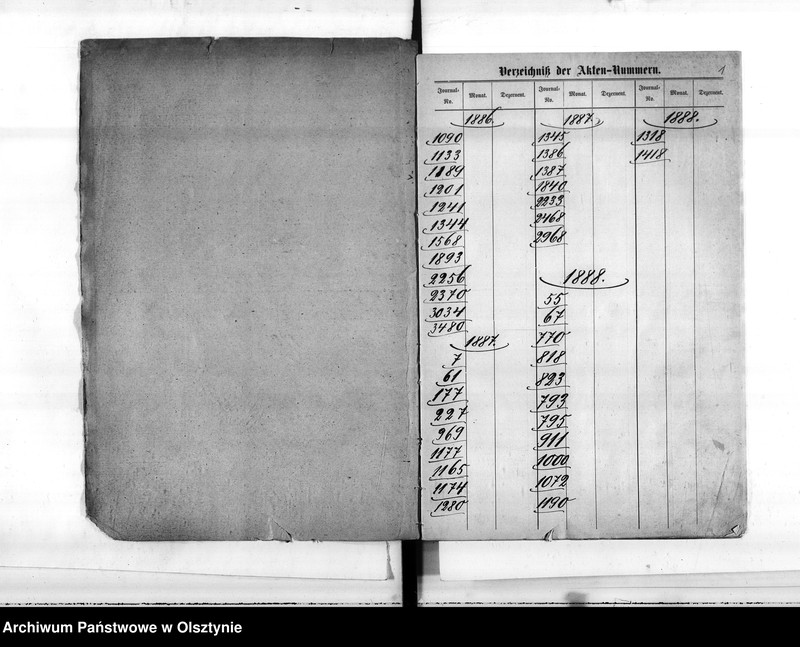 Verzeichniß der Akten-Nummern.
1
Journal-No. Monat. Dezernent. Journal-No. Monat. Dezernent. Journal-No. Monat. Dezernent.
1886.
1090
1133
1189
1201
1241
1344
1568
1893
2256
2370
3034
3480
1887.
7
61
177
227
969
1177
1165
1174
1280
1887.
1345
1386
1387
1840
2233
2468
2968
1888.
55
67
770
818
823
793
795
911
1000
1072
1190
1888.
1318
1418
Archiwum Państwowe w Olsztynie